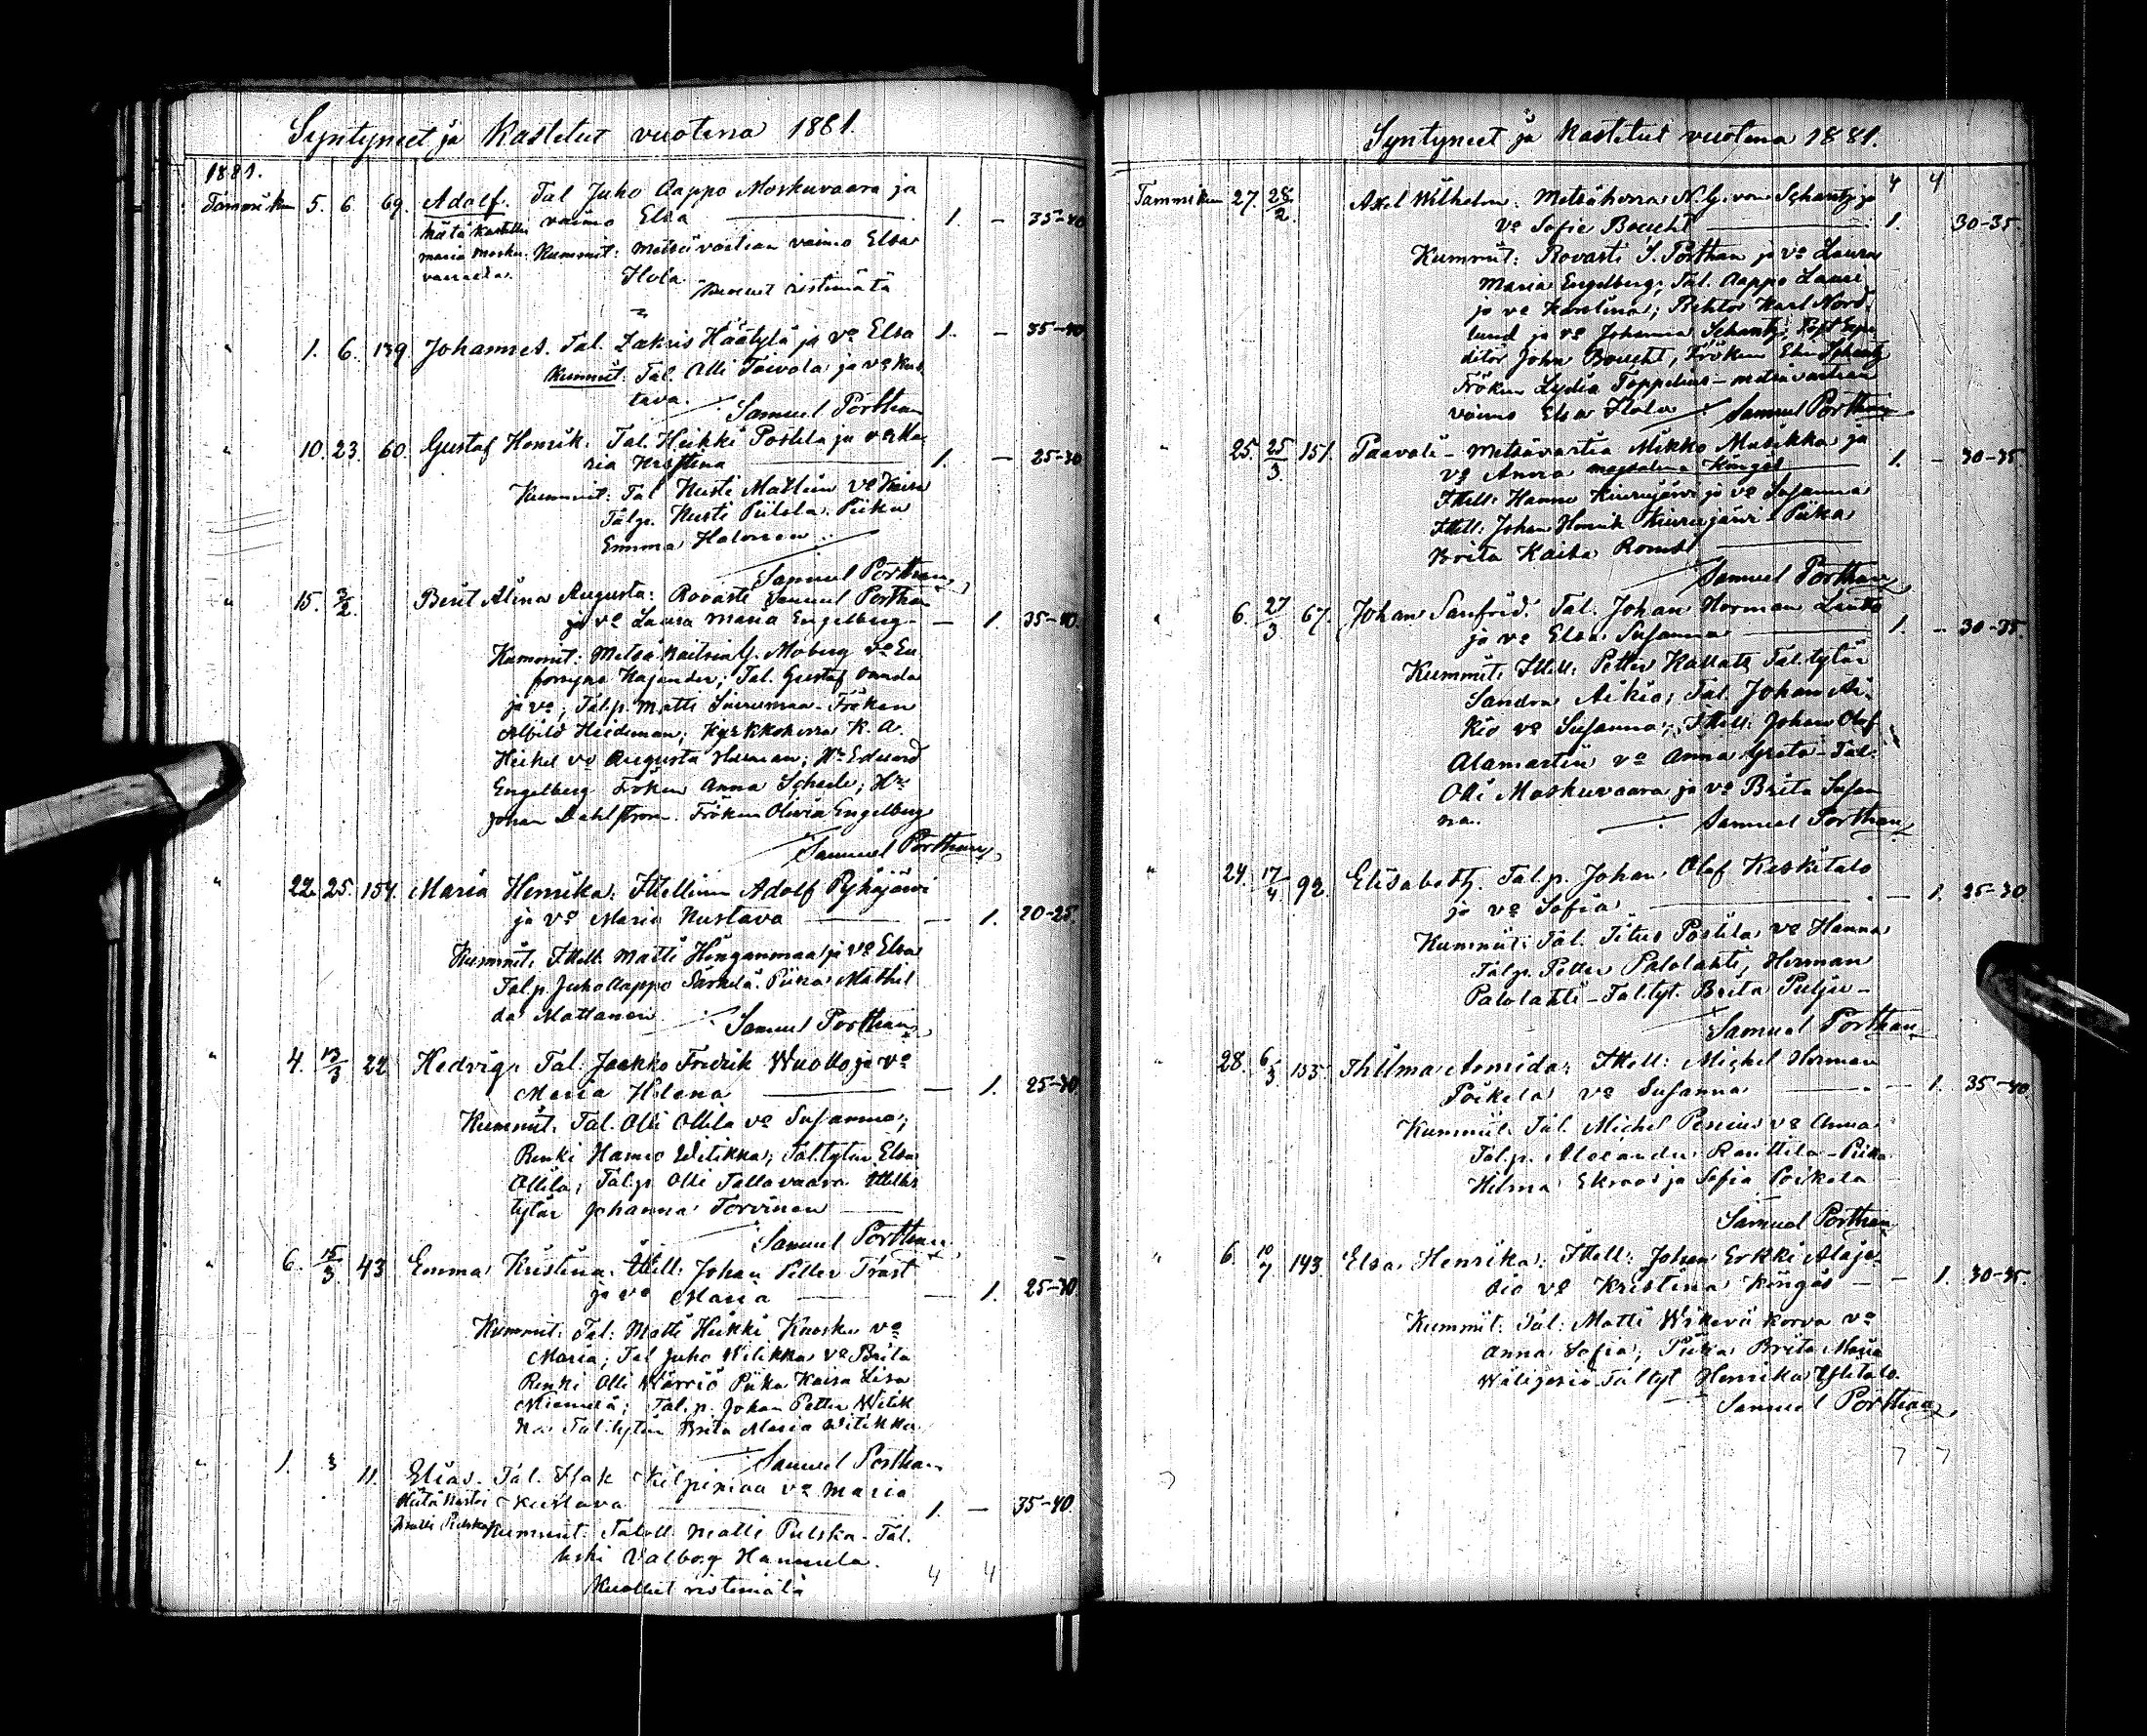 Syntyneet ja Kastetut vuotena 1881.
1881.
Tammikuu 5. 6. 69. Adolf. Tal Juho Aappo Moskuvaara ja
Hätä Kastettu vaimo Elsa 1. - 35-40
Maria Mosku- Kummit: Metsävartian vaimo Elsa
vaaralta. Hola
Kuollut ristimätä
" 1. 6. 139. Johannes. Tal. Zakris Häätylä ja vo Elsa 1. - 35-40
Kummit: Tal. Olli Toivola ja vo Kus
tava. Samuel Porthan
" 10. 23. 60. Gustaf Henrik. Tal. Heikki Postila ja vo Ma
ria Kristina 1. - 25-30
Kummit: Tal Kusti Mattinen vo Kaisa
Talp. Kusti Piilola. Piika
Emma Halonen
Samuel Porthan
" 15. 3/2. Berit Alina Augusta: Rovasti Samuel Porthan
ja vo Laura Maria Engelberg - 1. 35-40.
Kummit: Metsä G. Moberg vo Eu
Kajander; Tal. Gustaf Vanda
ja vo; Talp. Matti Fröken
Heideman; Kyrkkoherra K. A.
Heikel vo Augusta Herman; Hr Edvard
Engelberg Fröken Anna Scheele; Hr
Johan Dahlström. Fröken Olivia Engelberg
Samuel Porthan
" 22. 25. 154. Maria Henrika: Ittellinen Adolf Pyhäjärvi
ja vo Maria Kustava - 1. 20-25.
Kummit: Ittell. Matti Henganmaa ja vo Elsa
Talp. Juho Aappo Särkelä. Piika Mathil
da Mattanen Samuel Porthan
" 4. 13/3 22 Hedvig. Tal. Jaakko Fredrik Wuollo ja vo
Maria Helena - 1. 25-30
Kummit: Tal. Olli Ollila vo Susanna;
Renki Hannes Witikka; Tal.tytär Elsa
Ollila; Talp Olli Tallavaara Ittellis
tytär Johanna Torvinen
Samuel Porthan
" 6. 15/3. 43 Emma Kristina. Ittell: Johan Petter Trast
ja vo Maria - 1. 25-30.
Kummit: Tal: Matti Heikki Kuosku vo
Maria; Tal Juho Witikka vo Brita
Renki Olli Wärriö Piika Kaisa Lisa
Niemelä; Tal. p. Johan Petter Witik
ka Tal.tytär Brita Maria Witikka
Samuel Porthan
" 1. 3 11. Elias. Tal. Isak Kilpimaa vo Maria
Hätä Kastoi Kustava 1. - 35-40.
Matti Pulska Kummit: Matti Pulska - Tal.
leski Valborg Hannula.
Kuollut ristimätä 4 4
Syntyneet ja Kastetut vuotena 1881.
4 4
Tammikuu 27. 28/2. Axel Wilhelm: Metsäherra N. G. von Schantz ja
vo Sofie Boucht 1. 30-35.
Kummit: Rovasti S. Porthan ja vo Laura
Maria Engelberg; Tal. Aappo Lauri
ja vo Karolina; Rehtor Karl Nord
lund ja vo Johanna Schantz; Post Expe
ditör John Boucht, Fröken Schantz
Fröken Lydia Toppelius - metsävartian
vaimo Elsa Hola Samuel Porthan
" 25. 25/3. 151. Paavali - Metsävartia Mikko Musikka ja
vo Anna Magdalena Köngäs 1. - 30-35.
Ittell: Hannu Kiurujärvi ja vo Susanna
Ittell: Johan Henrik Kiurujärvi - Piika
Brita Kaisa
Samuel Porthan
" 6. 27/3 67. Johan Sanfrid. Tal. Johan Herman Lantto
ja vo Elsa Susanna 1. - 30-35.
Kummit: Ittell: Petter Kallatt, Tal.tytär
Sandra Aikio; Tal. Johan Ai-
kio vo Susanna; Ittell: Johan Olof
Alamartin vo Anna Greta - Tal.
Olli Moskuvaara ja vo Brita Susan
na. Samuel Porthan
" 24. 17/4 92. Elisabeth. Tal.p. Johan Olof Keskitalo
ja vo Sofia - 1. 25-30
Kummit: Tal. Titus Postila vo Hanna
Talp. Petter Palolahti, Herman
Palolahti - Tal.tyt. Brita Pulju -
Samuel Porthan
" 28. 6/5 155 Thilma Armida: Ittell: Michel Herman
Poikela vo Susanna - 1. 35-40.
Kummit: Tal. Michel Pessius vo Anna
Tal.p. Alexander Rauttila - Piika
Hilma Ekroos ja Sofia Poikela
Samuel Porthan
" 6. 10/7 143. Elsa Henrika: Ittell: Johan Erkki Alaje-
sio vo Kristina Köngäs - 1. 30-35.
Kummit: Tal: Matti korva vo
Anna Sofia; Piika Brita Maria
Wälijesiö Tal.tyt Henrika Ylitalo.
Samuel Porthan
7 7